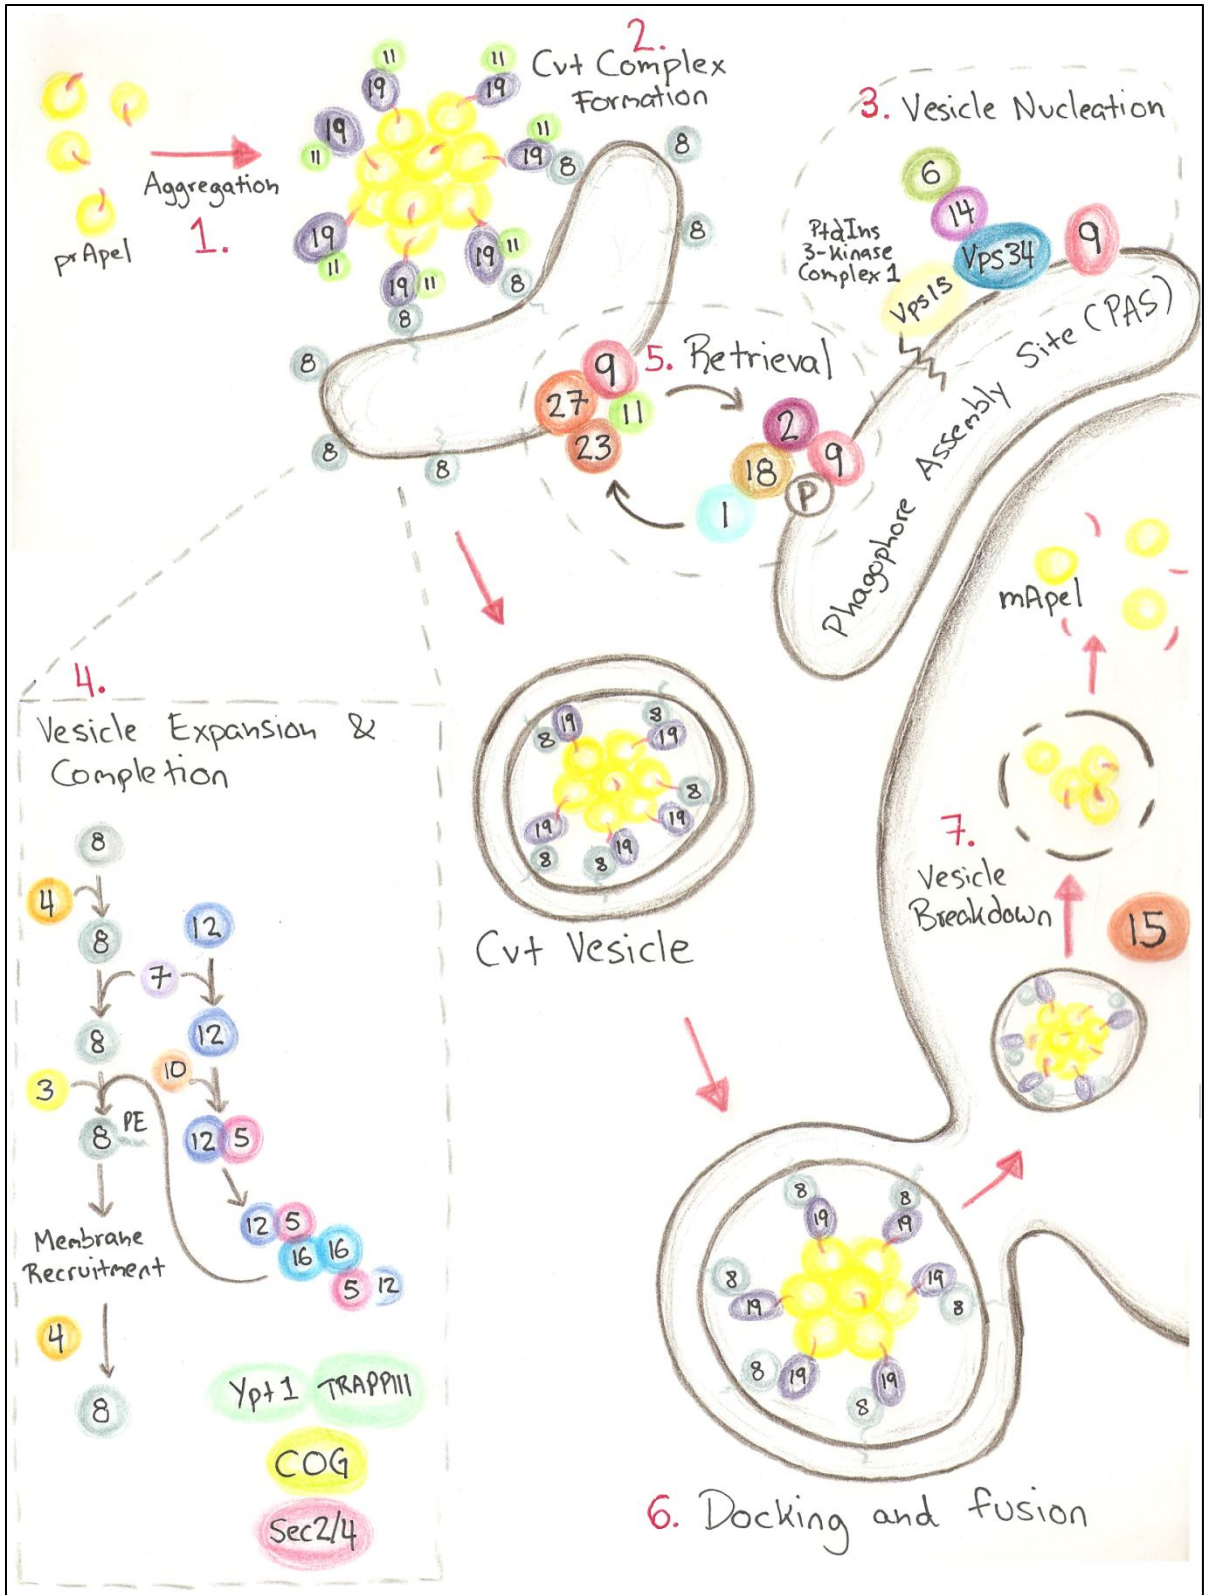 2.
Cvt Complex
Formation
11
19
11
19
19
11
11
19
8
19
11
19
11
19
11
8
8
8
8
8
8
8
prApe1
Aggregation
1.
3. Vesicle Nucleation
6
14
Vps34
9
PtdIns
3-kinase
Complex 1
Vps15
Phagophore Assembly Site (PAS)
5. Retrieval
9
27
11
23
2
18
9
P
1
mApe1
4.
Vesicle Expansion &
Completion
8
4
8
12
7
8
12
10
3
8
PE
12 5
12 5
16 16
5 12
Membrane
Recruitment
4
8
Ypt1 TRAPPIII
COG
Sec2/4
19
8
8
19
8
19
19
8
8
19
Cvt Vesicle
7.
Vesicle
Breakdown
15
8
19
8
19
8
19
19
8
8
19
8
19
6. Docking and fusion